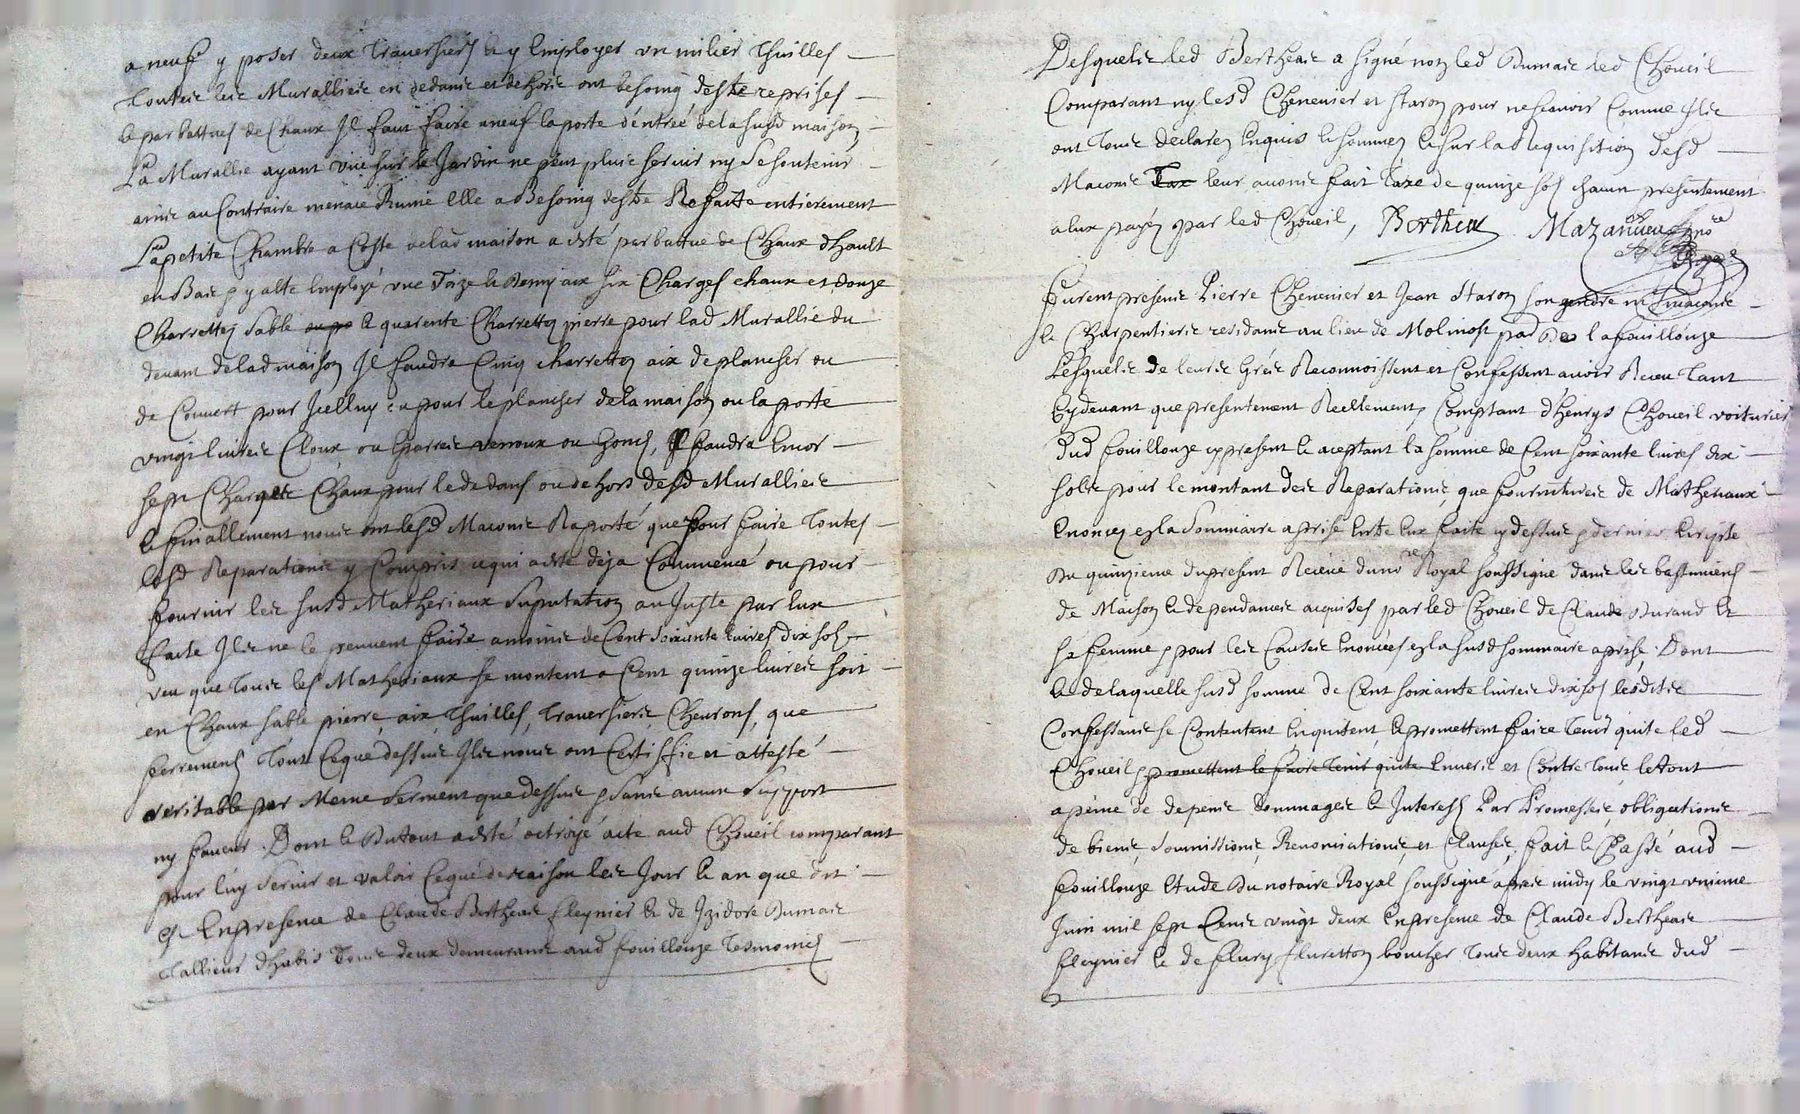 a neuf y poser deux traversiers & y Employer un milier Thuilles
toutes les Muralliers en dedans et dehors ont besoing destre reprises
& parbattues de Chaux Il faut faire aneuf la porte d'éntreé delasusd maison
La Murallie ayant vue sur le Jardin ne peut plus servir ny Se soutenir
ains au Contraire menaie Ruine Elle a Besoing destre Refaitte entiérement
La petite Chambre a Coste delad maison a esté parbattue de Chaux d'hault
en Bas y a este Employé une Toize & Demy aix six Charges chaux et donze
Charrettes sable & quarente Charrettes pierre pour lad Murallie du
devant delad maison Il faudra Cinq charrettes aix de plancher ou
de Couvert pour Icelluy pour le plancher dela maison ou la porte
vingt livres Cloux ou barres verroux ou gonds, Il faudra Encor
sept Charges Chaux pour le dedans ou dehors desd Murallies
& finallement nous ont lesd Macons Raporté que pour faire Toutes
lesd Reparations y Compris cequi a esté déja Commencé ou pour
fournir les susd Matheriaux Suputation au Juste par Eux
faite Ils ne le peuvent faire amoins de Cent soixante livres dix sols
veu que tous les Matheriaux se montent a Cent quinze livres soit
en Chaux sable pierre, aix Thuilles, traversiers Chevrons, que
ferrements Tout Ceque dessus Ils nous ont Certiffie et attesté
veritable par Meme Serment que dessus Sans aucun Suport
ny faveur. Dont & Du tout a esté octroyé acte aud Choveil comparant
pour luy Servir et valoir Ceque deraison les Jour & an que dit
Est Enpresence de Claude Bertheas fleynier & de Izidore Dumas
Tallieur d'habis Tous deux demeurants aud fouillouze Tesmoins
Desquels led Bertheas a signé non led Dumas led Choveil
Comparant ny lesd Cheneuier et Staron pour ne scavoir Comme Ils
ont Tous declarez Enquis & sommez & sur la Requisition desd
Macons leur avons fait Taxe de quinze sols chacun presentement
a Eux payez par led Choveil, Bertheas Mazanieu
furent presents Pierre Cheneuier et Jean Staron son gendre
& Charpentiers residants au lieu de Molinost par de la fouillouze
Lesquels de leurs Grés Reconnoissent et Confessent avoir Receu Tant
Cydevant que presentement Reellement, Comptant d'henrys Choveil voiturier
dud fouillouze cypresent & aceptant la somme de Cent soixante livres dix
sols pour le montant des Reparations, que fournitures de Matheriaux
Enoncez ezla Sommaire aprise Cy dessus dernier Escripte
Du quinzieme dupresent Receue dunore Royal soussigne dans les bastiments
de Maison & dependances acquises par led Choveil de Claude Durand &
sa femme, pour les Causes Enoncees ezla susd sommaire aprise. Dont
& delaquelle susd somme de Cent soixante livres dix sols lesdits
Confessants se Contentent Enquitent, & promettent faire Tenir quite led
Choveil promettent le faire Tenir quite Envers et Contre Tous letout
apeine de depens Dommages & Interests Par Promesses, obligations
de biens, Soumissions, Renonciations, et Clauses, fait & Passé aud
fouillouze Etude Du notaire Royal soussigne apres midy le vingt unieme
Juin mil sept Cents vingt deux Enpresence de Claude Bertheas
fleynier & de fleury fleuretton boucher Tous deux habitants dud